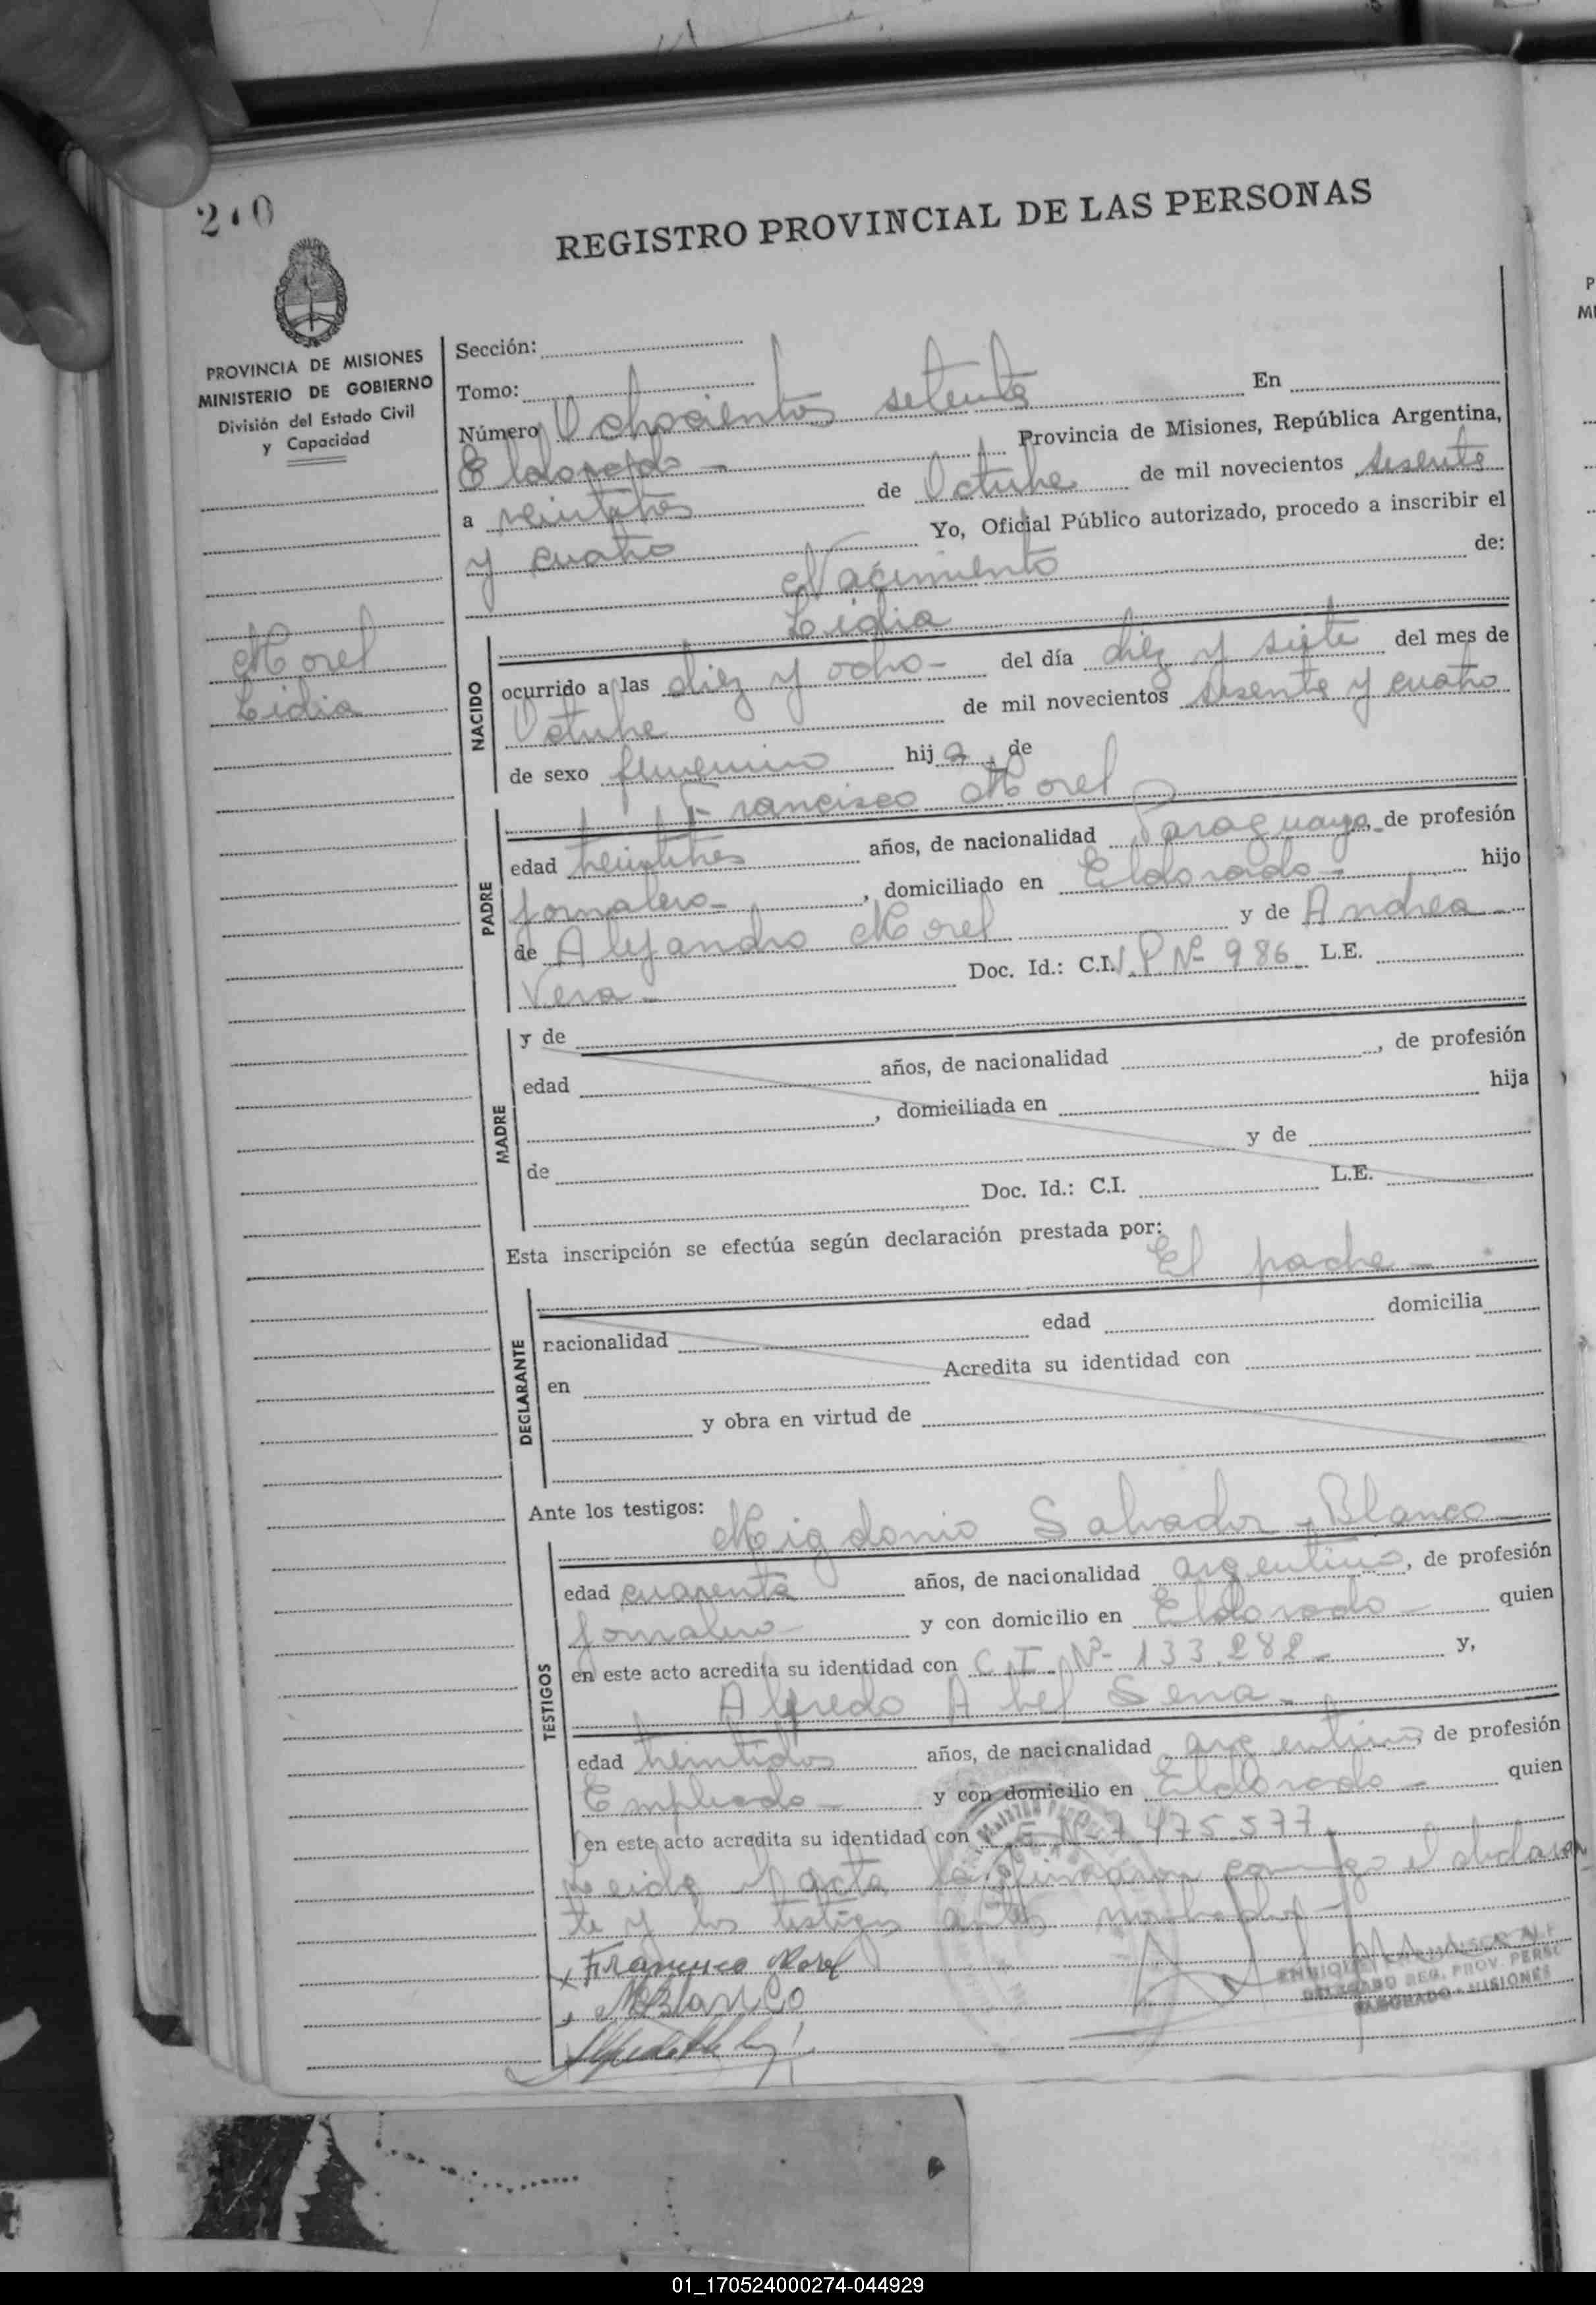 REGISTRO PROVINCIAL DE LAS PERSONAS
PROVINCIA DE MISIONES
MINISTERIO DE GOBIERNO
División del Estado Civil
y Capacidad
Morel
Lidia
Sección:
Tomo:
Número Ochocientos setenta En
Eldorado - Provincia de Misiones, República Argentina,
a veintitres de Octubre de mil novecientos sesenta
y cuatro Yo, Oficial Público autorizado, procedo a inscribir el
Nacimiento de:
Lidia
NACIDO
ocurrido a las diez y ocho - del día diez y siete del mes de
Octubre de mil novecientos sesenta y cuatro
de sexo femenino hija de
Francisco Morel
PADRE
edad años, de nacionalidad Paraguaya, de profesión
jornalero - , domiciliado en Eldorado - hijo
de Alejandro Morel y de Andrea -
Vera - Doc. Id.: C.I. V.P. Nº 986 L.E.
MADRE
y de
edad años, de nacionalidad , de profesión
, domiciliada en hija
de y de
Doc. Id.: C.I. L.E.
Esta inscripción se efectúa según declaración prestada por:
El padre -
DECLARANTE
nacionalidad edad domicilia
en Acredita su identidad con
y obra en virtud de
Ante los testigos:
Migdonio Salvador Blanco
TESTIGOS
edad cuarenta años, de nacionalidad argentino, de profesión
jornalero y con domicilio en Eldorado - quien
en este acto acredita su identidad con C.I. Nº 133.282 - y,
Alfredo Abel Sena -
edad treintidos años, de nacionalidad argentino, de profesión
Empleado - y con domicilio en Eldorado - quien
en este acto acredita su identidad con Nº 7.475.577
Leida el acta la firmaron conmigo el declaran
te y los testigos antes nombrados -
x Francisco Morel
MBlanco
DELEGADO REG. PROV. PERS.
ELDORADO - MISIONES
01_170524000274-044929